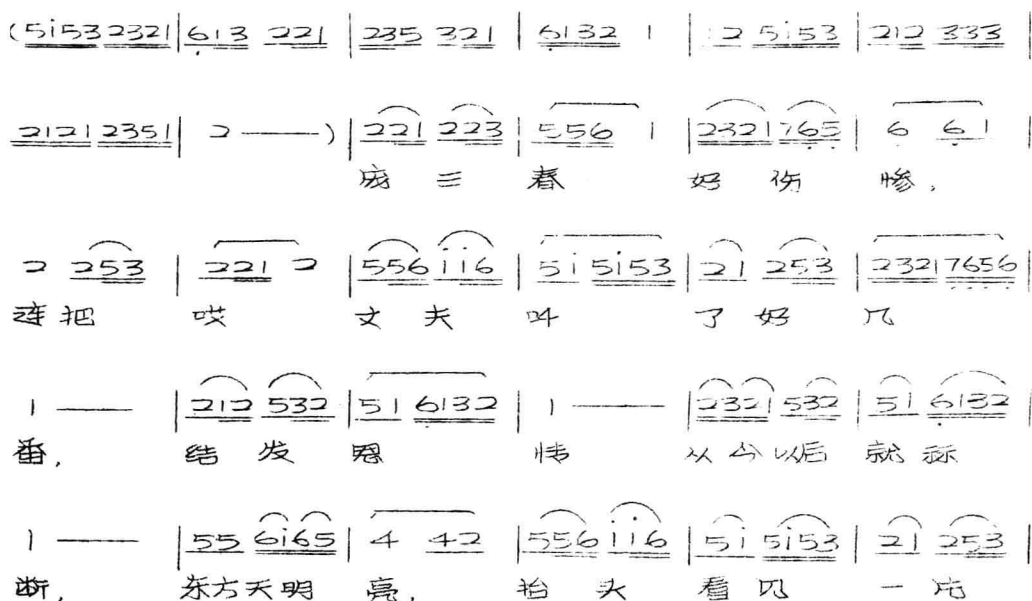 (5i53 2321 | 613 221 | 235 321 | 6132 1 | 12 5i53 | 212 333 |
2121 2351 | 2 —— ) | 221 223 | 556 1 | 2321 765 | 6 61 |
庞三春 好伤惨,
2 253 | 221 2 | 556 ii6 | 5i 5i53 | 21 253 | 2321 7656 |
连把 哎 丈夫 叫 了好 几
1 —— | 212 532 | 51 6132 | 1 —— | 2321 532 | 51 6132 |
番, 结发恩 情 从今以后 就
1 —— | 55 6i65 | 4 42 | 556 ii6 | 5i 5i53 | 21 253 |
断, 东方天明 亮, 抬头 看见 一